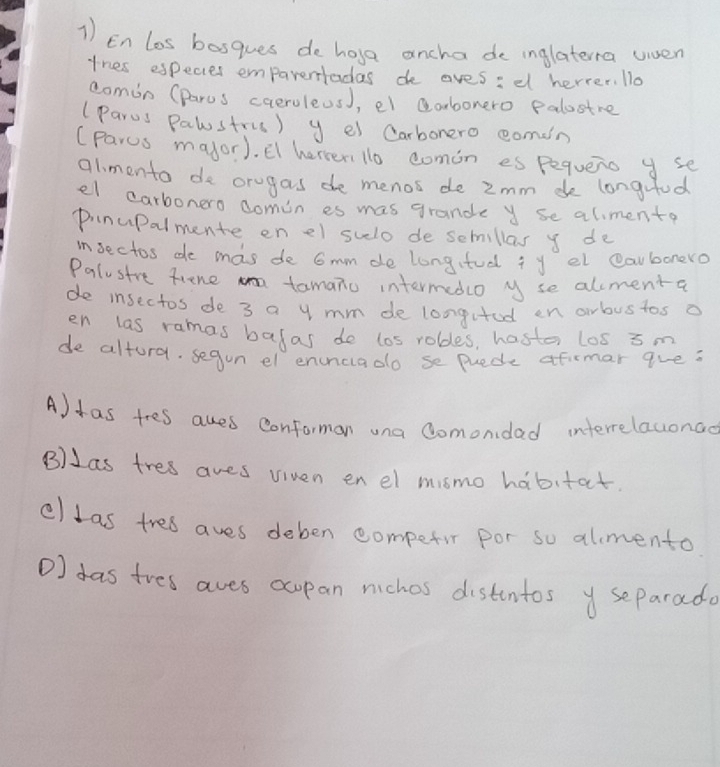 1) En los bosques de hoja ancha de inglaterra viven
tres especies emparentadas de aves: el herrerillo
común (Parus caeruleus), el Carbonero Palustre
(Parus Palustris) y el Carbonero común
(Parus major). El herrerillo común es Pequeño y se
alimenta de orugas de menos de 2mm de longitud
el carbonero común es mas grande y se alimenta
Principalmente en el suelo de semillas y de
insectos de más de 6mm de longitud; y el Carbonero
Palustre tiene tamaño intermedio y se alimenta
de insectos de 3 a 4 mm de longitud en arbustos o
en las ramas bajas de los robles, hasta los 3 m
de altura. segun el enunciado se Puede afirmar que:
A) Las tres aves Conforman una Comonidad interrelacionad
B) Las tres aves viven en el mismo hábitat.
C) Las tres aves deben Competir Por su alimento.
D) Las tres aves ocupan nichos distintos y separado